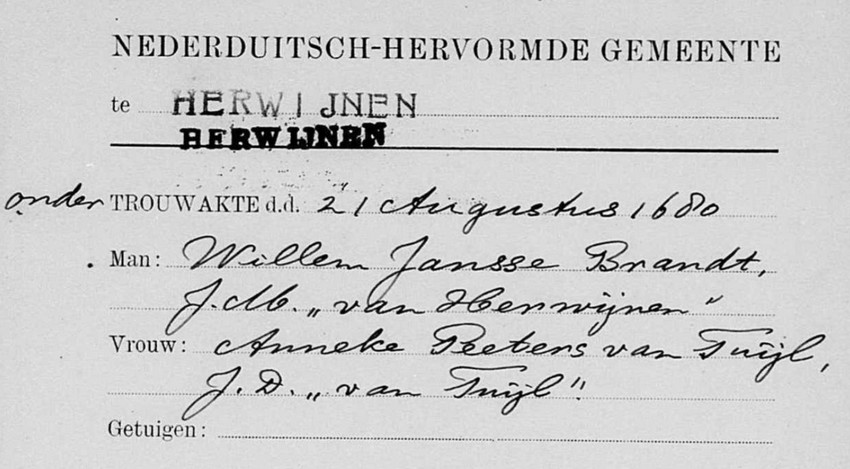 NEDERDUITSCH-HERVORMDE GEMEENTE
te HERWIJNEN
HERWIJNEN
onder TROUWAKTE d.d. 21 Augustus 1680
Man: Willem Jansse Brandt,
J.M. „van Herwijnen"
Vrouw: Anneke Peeters van Tuijl,
J.D. „van Tuijl".
Getuigen: